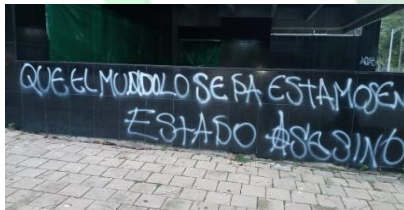 QUE EL MUNDO LO SEPA ESTAMOS EN
ESTADO ASESINO